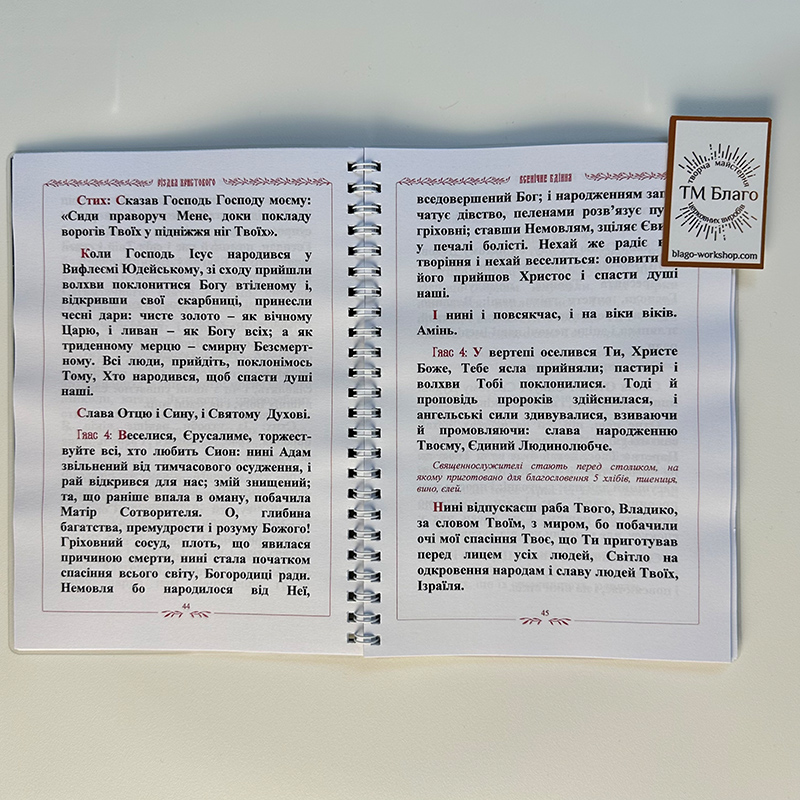 РІЗДВА ХРИСТОВОГО
Стих: Сказав Господь Господу моєму:
«Сиди праворуч Мене, доки покладу
ворогів Твоїх у підніжжя ніг Твоїх».
Коли Господь Ісус народився у
Вифлеємі Юдейському, зі сходу прийшли
волхви поклонитися Богу втіленому і,
відкривши свої скарбниці, принесли
чесні дари: чисте золото – як вічному
Царю, і ливан – як Богу всіх; а як
триденному мерцю – смирну Безсмерт-
ному. Всі люди, прийдіть, поклонімось
Тому, Хто народився, щоб спасти душі
наші.
Слава Отцю і Сину, і Святому Духові.
Глас 4: Веселися, Єрусалиме, торжест-
вуйте всі, хто любить Сион: нині Адам
звільнений від тимчасового осудження, і
рай відкрився для нас; змій знищений;
та, що раніше впала в оману, побачила
Матір Сотворителя. О, глибина
багатства, премудрости і розуму Божого!
Гріховний сосуд, плоть, що явилася
причиною смерти, нині стала початком
спасіння всього світу, Богородиці ради.
Немовля бо народилося від Неї,
44
ВСЕНІЧНЕ БДІННЯ
вседовершений Бог; і народженням
чатує дівство, пеленами розв’язує
гріховні; ставши Немовлям, зціляє
у печалі болісті. Нехай же радіє
творіння і нехай веселиться: оновити
його прийшов Христос і спасти душі
наші.
І нині і повсякчас, і на віки віків.
Амінь.
Глас 4: У вертепі оселився Ти, Христе
Боже, Тебе ясла прийняли; пастирі і
волхви Тобі поклонилися. Тоді й
проповідь пророків здійснилася, і
ангельські сили здивувалися, взиваючи
й промовляючи: слава народженню
Твоєму, Єдиний Людинолюбче.
Священнослужителі стають перед столиком, на
якому приготовано для благословення 5 хлібів, пшениця,
вино, єлей.
Нині відпускаєш раба Твого, Владико,
за словом Твоїм, з миром, бо побачили
очі мої спасіння Твоє, що Ти приготував
перед лицем усіх людей, Світло на
одкровення народам і славу людей Твоїх,
Ізраїля.
45
творча майстерня
ТМ Благо
церковних виробів
blago-workshop.com